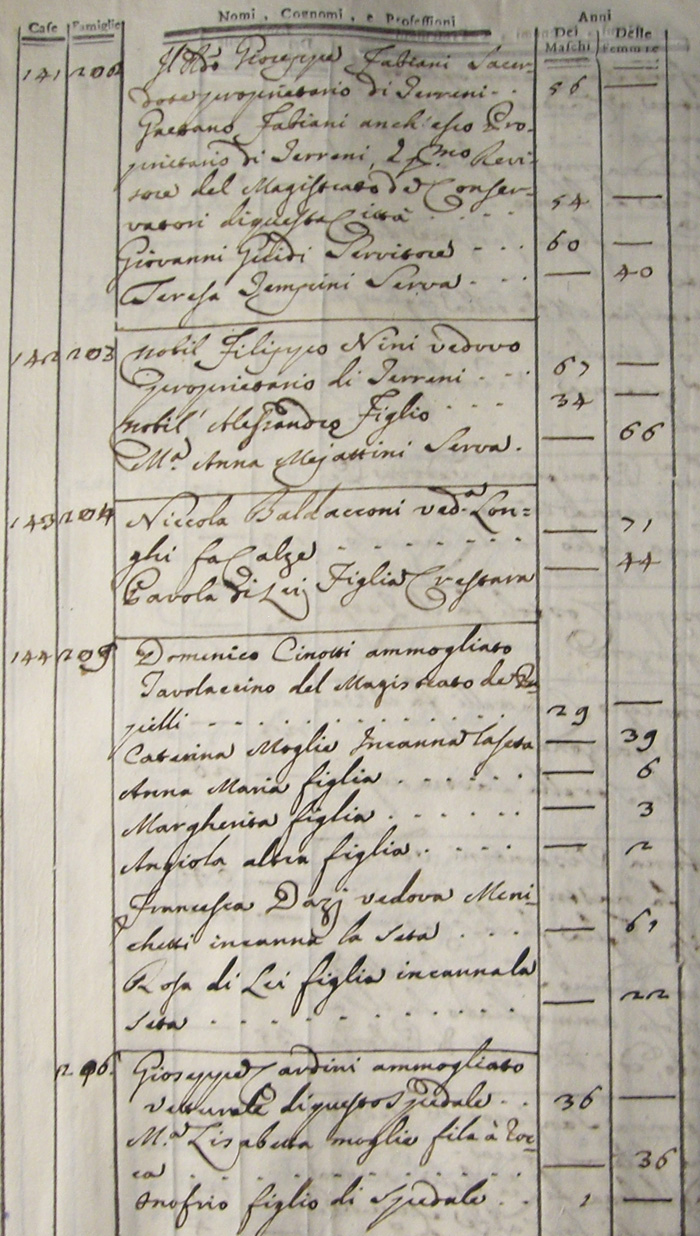 Case Famiglie Nomi, Cognomi, e Professioni Anni
Dei Maschi Delle Femmine
141 202 Il Rdo Gioseppe Fabiani Sacer-
dote proprietario di Terreni - - 56 —
Gaetano Fabiani anch'esso Pro-
prietario di Terreni, Revi-
sore del Magistrato de Conser-
vatori di questa Città 54 —
Giovanni Guidi Servitore - - - 60 —
Teresa Serva - - - — 40
142 203 Nobil Filippo Nini vedovo
proprietario di Terreni - - - 67 —
Nobil Alessandro Figlio - - - 34 —
Ma. Anna Mejattini Serva. — 66
143 204 Niccola Baldacconi veda. Lon=
ghi fa Calze - - - - - - - — 71
Pavola di Lei Figlia Crestara — 44
144 205 Domenico Cinotti ammogliato
Tavolaccino del Magistrato de Pu-
pilli - - - - - - - - - - 29 —
Caterina Moglie Incanna la seta — 39
Anna Maria figlia . - - - - - — 6
Margherita figlia . - - - - - — 3
Angiola altra figlia . - - - — 2
Francesca Dazj vedova Meni-
chetti incanna la Seta - - - — 61
Rosa di Lei figlia incanna la
Seta - - - - - - - - - - — 22
206. Gioseppe Cardini ammogliato
vetturale di questo Spedale - - 36 —
Ma. Lisabetta moglie fila à Roc-
ca - - - - - - - - - - — 36
Onofrio figlio di Spedale - - 1 —